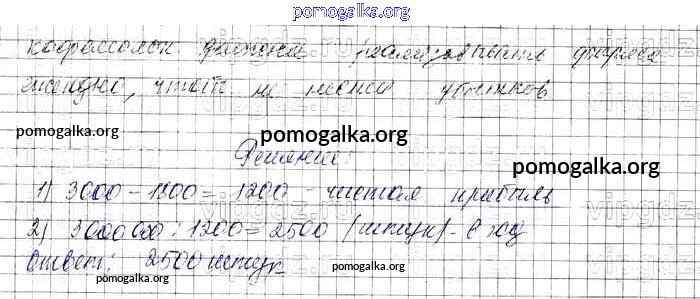 pomogalka.org
должна реализовывать фирма
ежегодно, чтобы не нести убытков
pomogalka.org
pomogalka.org
Решение:
pomogalka.org
1) 3000 - 1800 = 1200 - чистая прибыль
2) 3000 000 : 1200 = 2500 (штук) - в год
Ответ: 2500 штук
pomogalka.org
pomogalka.org